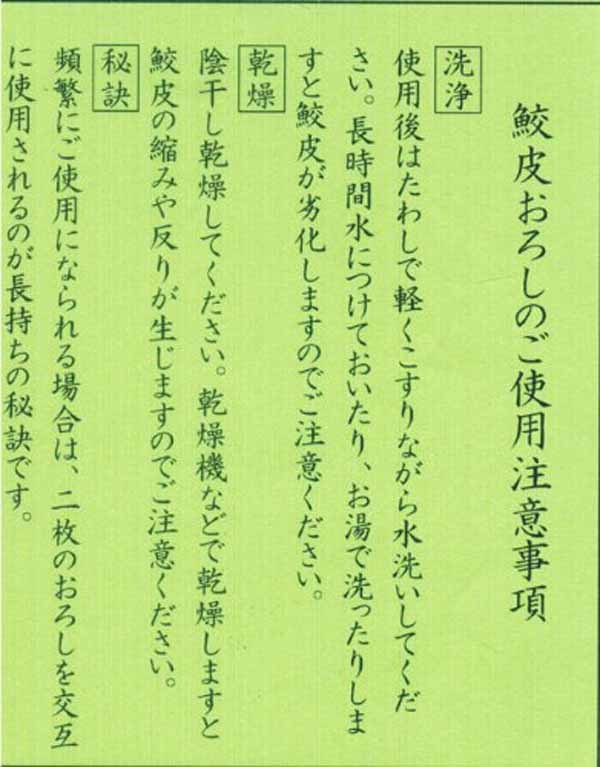 鮫皮おろしのご使用注意事項
洗浄
使用後はたわしで軽くこすりながら水洗いしてくだ
さい。長時間水につけておいたり、お湯で洗ったりしま
すと鮫皮が劣化しますのでご注意ください。
乾燥
陰干し乾燥してください。乾燥機などで乾燥しますと
鮫皮の縮みや反りが生じますのでご注意ください。
秘訣
頻繁にご使用になられる場合は、二枚のおろしを交互
に使用されるのが長持ちの秘訣です。